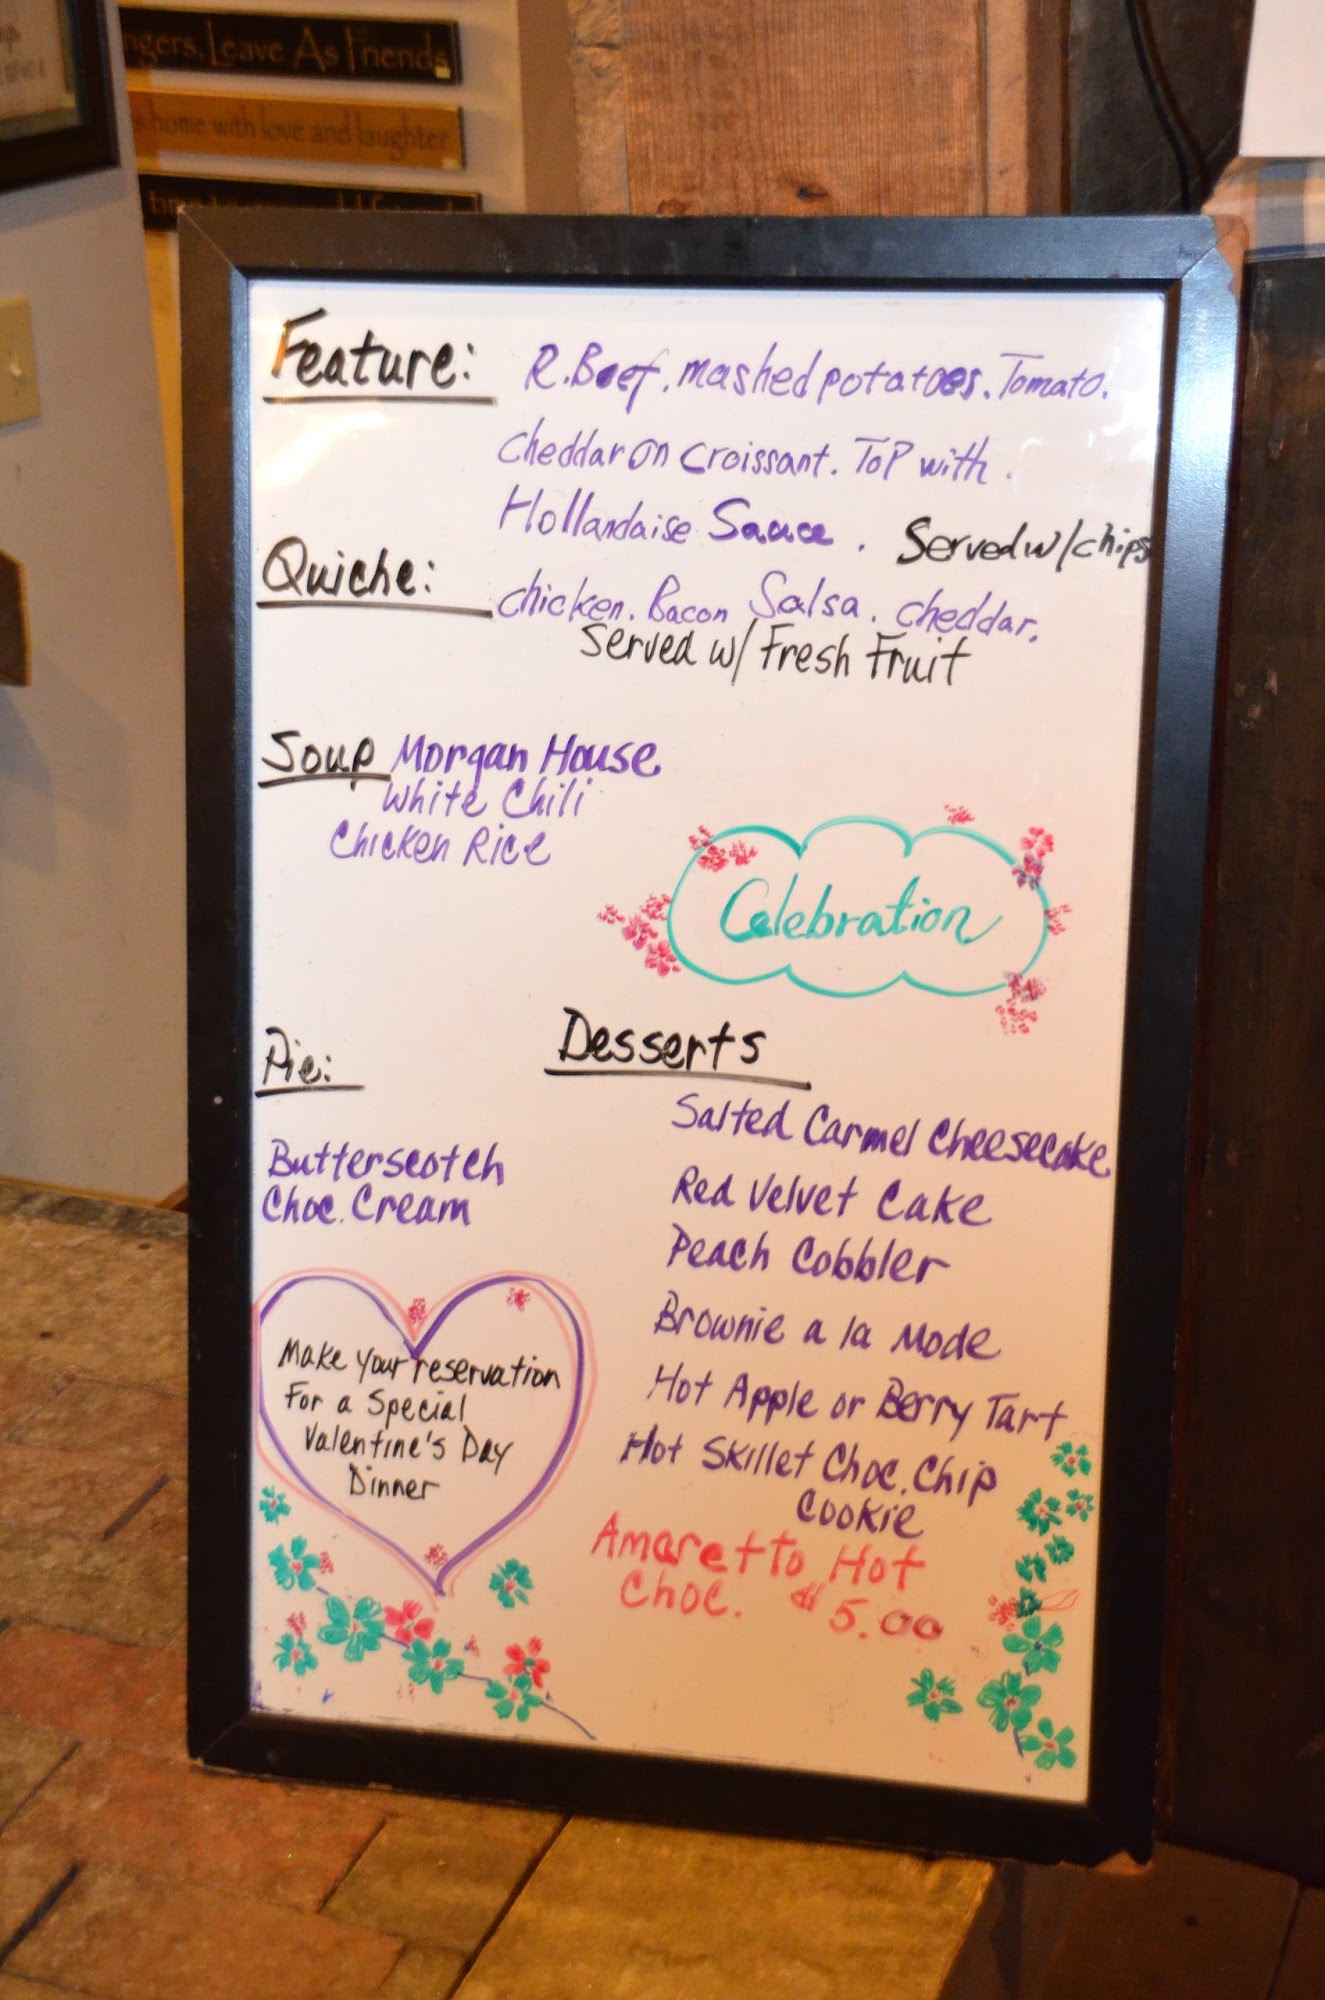 ngers, Leave As Friends
home with love and laughter
Feature: R. Beef. mashed potatoes. Tomato.
cheddar on croissant. Top with.
Hollandaise Sauce. Served w/chips
Quiche: chicken. Bacon Salsa. cheddar.
Served w/ Fresh Fruit
Soup Morgan House
White Chili
Chicken Rice
Celebration
Pie:
Desserts
Butterscotch
Choc. Cream
Salted Carmel Cheesecake
Red Velvet Cake
Peach Cobbler
Brownie a la Mode
Hot Apple or Berry Tart
Hot Skillet Choc. Chip
Cookie
Amaretto Hot
Choc. $5.00
Make your reservation
For a Special
Valentine's Day
Dinner